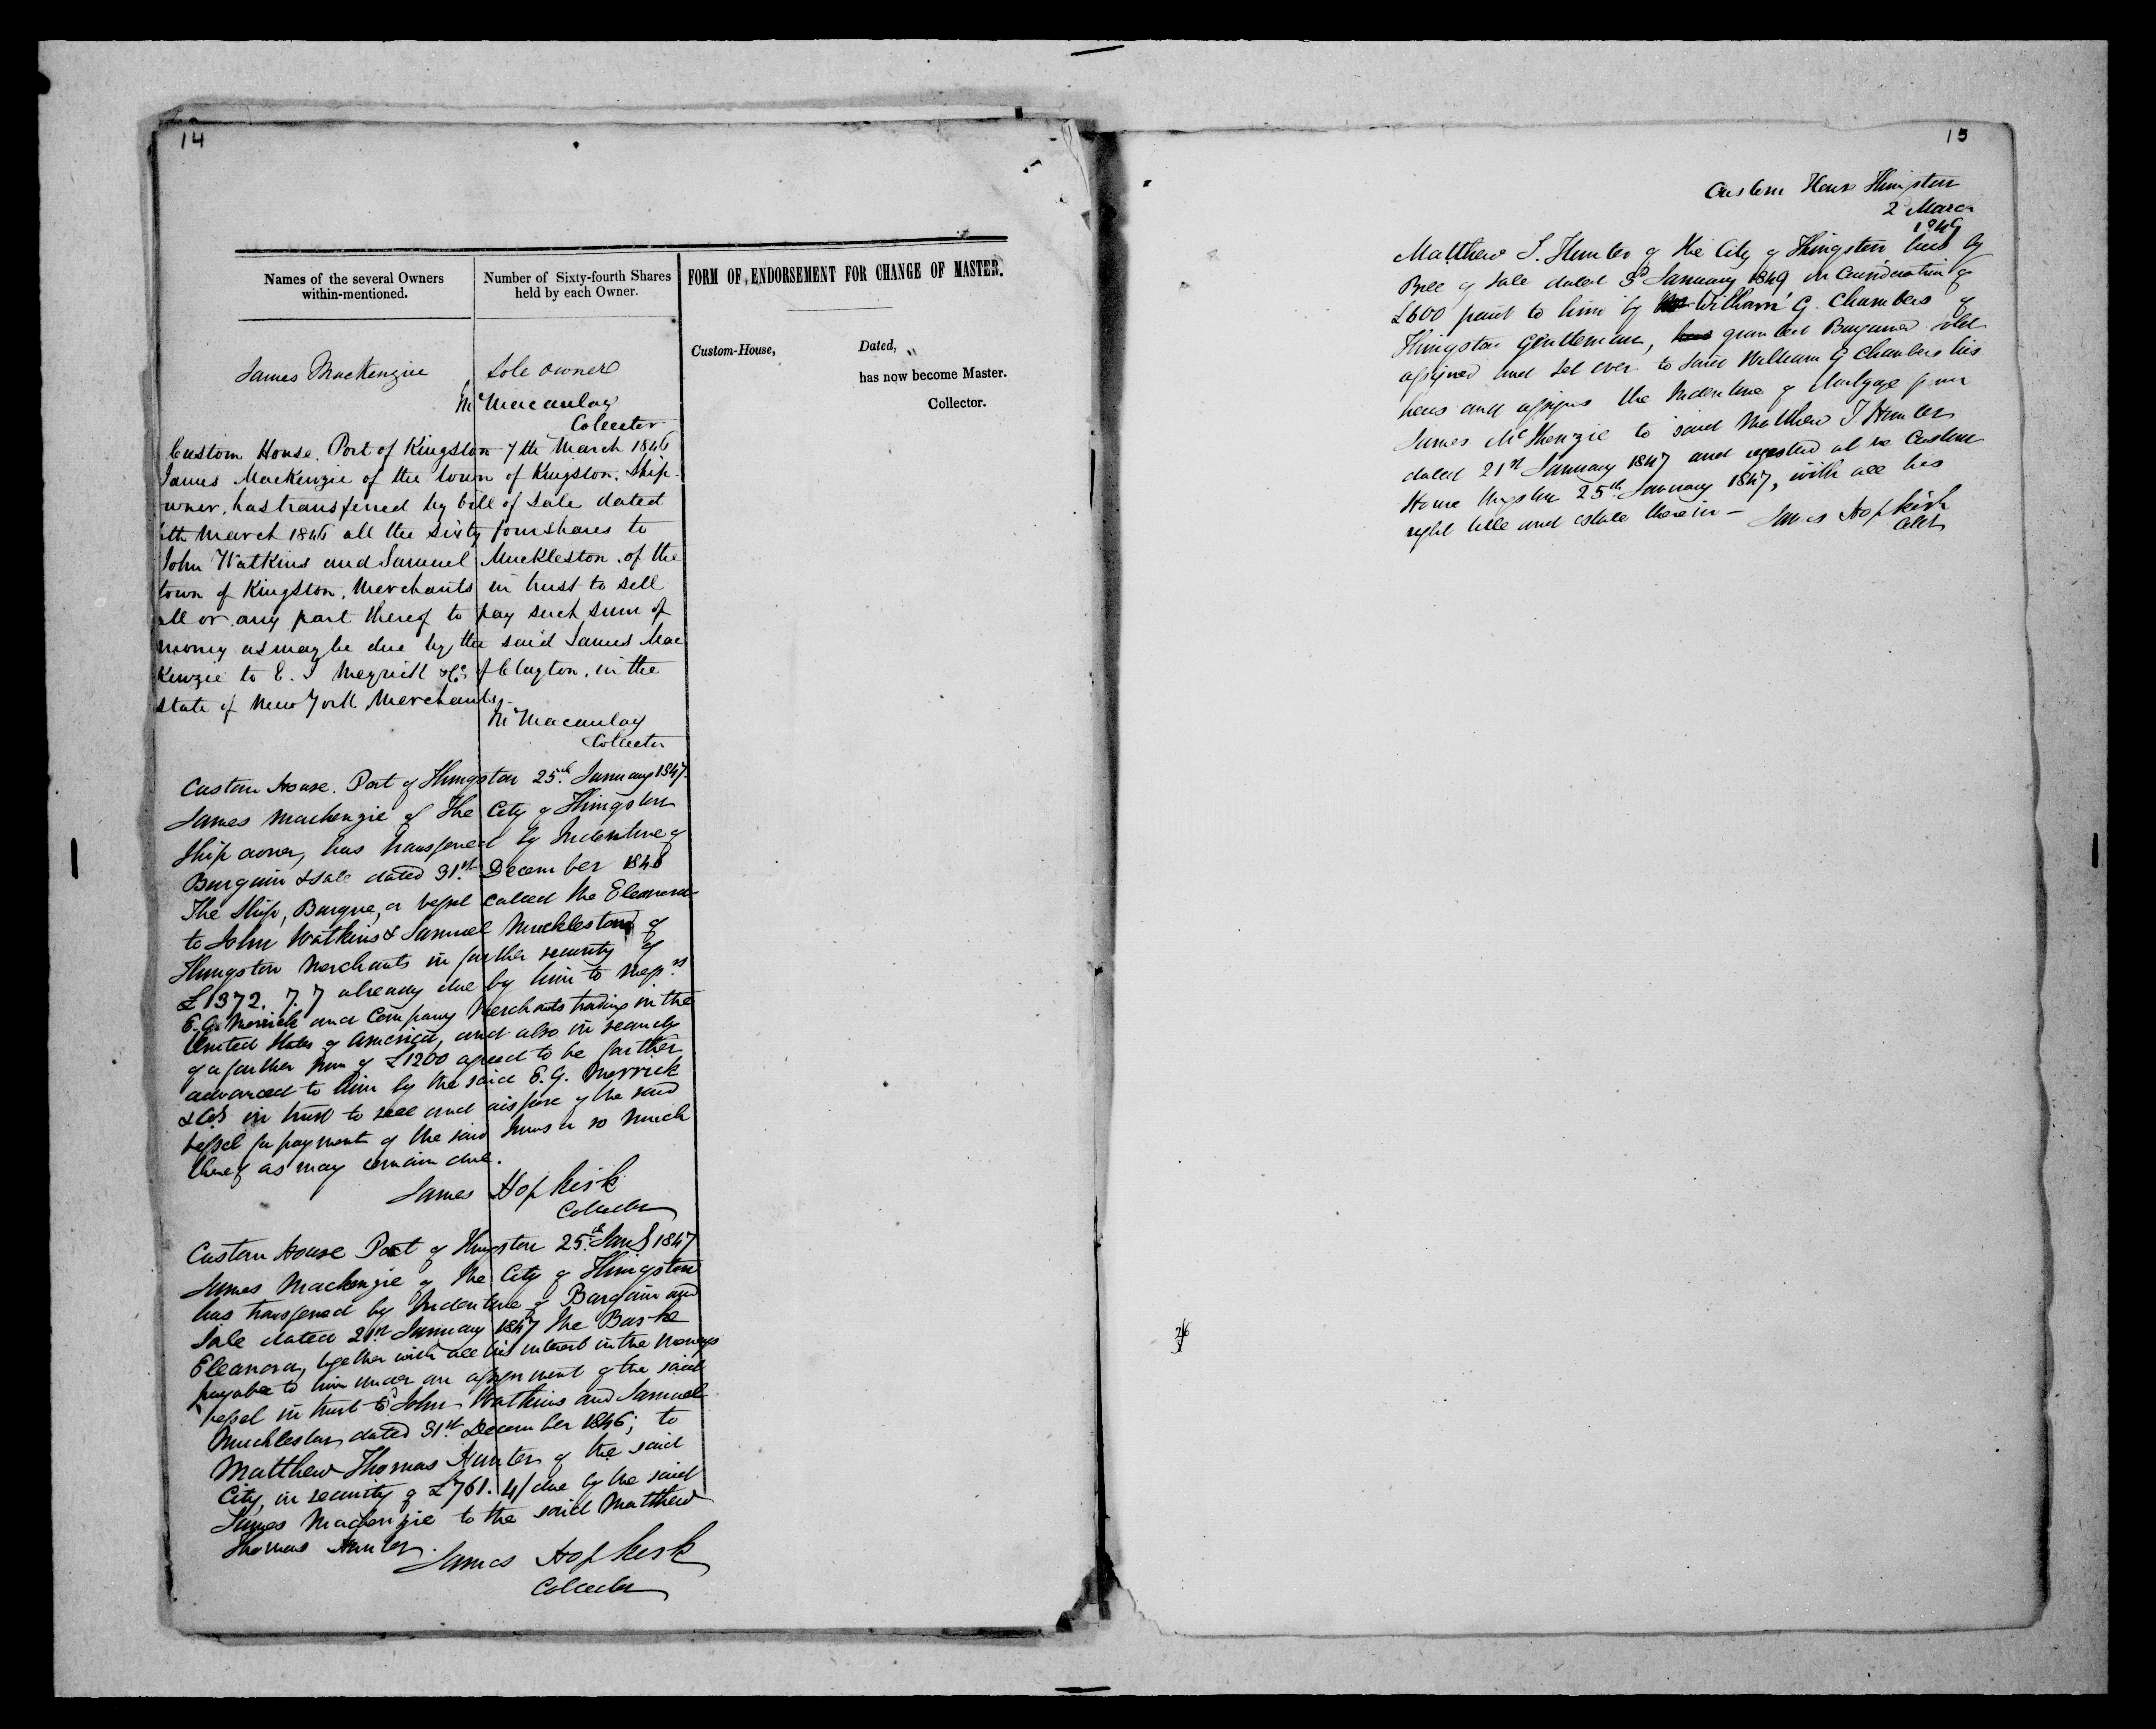 14
Names of the several Owners
within-mentioned.
Number of Sixty-fourth Shares
held by each Owner.
FORM OF ENDORSEMENT FOR CHANGE OF MASTER.
Custom-House,
Dated,
has now become Master.
Collector.
James MacKenzie Sole owner
Macaulay
Collector
Custom House. Port of Kingston 7th March 1846
James MacKenzie of the town of Kingston. Ship
owner, has transferred by bill of Sale dated
6th March 1846 all the Sixty four shares to
John Watkins and Samuel Muckleston. of the
town of Kingston, Merchants in trust to sell
all or any part thereof to pay such sum of
money as may be due by the said James Mac
Kenzie to E. Merrick & Co. of Clayton, in the
state of New York Merchants,
Macaulay
Collector
Custom House. Port of Kingston 25th January 1847.
James Mackenzie of the City of Kingston
Ship owner, has transferred by Indenture of
Bargain & Sale dated 31st December 1846
The Ship, Barque, or vessel called the Eleanora
to John Watkins & Samuel Muckleston of
Kingston Merchants in further security of
£1372. 7. 7 already due by him to Messrs
E. G. Merrick and Company Merchants trading in the
United States of America, and also in security
of a further sum of £1200 agreed to be further
advanced to him by the said E. G. Merrick
& Co in trust to sell and dispose of the said
vessel for payment of the said sums or so much
thereof as may remain due.
James Hopkirk
Collector
Custom House Port of Kingston 25th Jany 1847
James Mackenzie of the City of Kingston
has transferred by Indenture of Bargain and
Sale dated 21st January 1847 the Barke
Eleanora, together with all his interest in the moneys
payable to him under an assignment of the said
vessel in trust to John Watkins and Samuel
Muckleston, dated 31st December 1846; to
Matthew Thomas Hunter of the said
City, in security of £761. 4/ due by the said
James Mackenzie to the said Matthew
Thomas Hunter.
James Hopkirk
Collector
15
Custom House Kingston
2 March
1849
Matthew T. Hunter of the City of Kingston has by
Bill of Sale dated 3d January 1849 in Consideration of
£600 paid to him by William G. Chambers of
Kingston Gentleman, granted Bargained sold
assigned and set over to said William G Chambers his
heirs and assigns the Indenture of Mortgage from
James McKenzie to said Matthew T. Hunter
dated 21st January 1847 and registered at the Custom
House Kingston 25th January 1847, with all his
right title and estate therein -
James Hopkirk
Collr